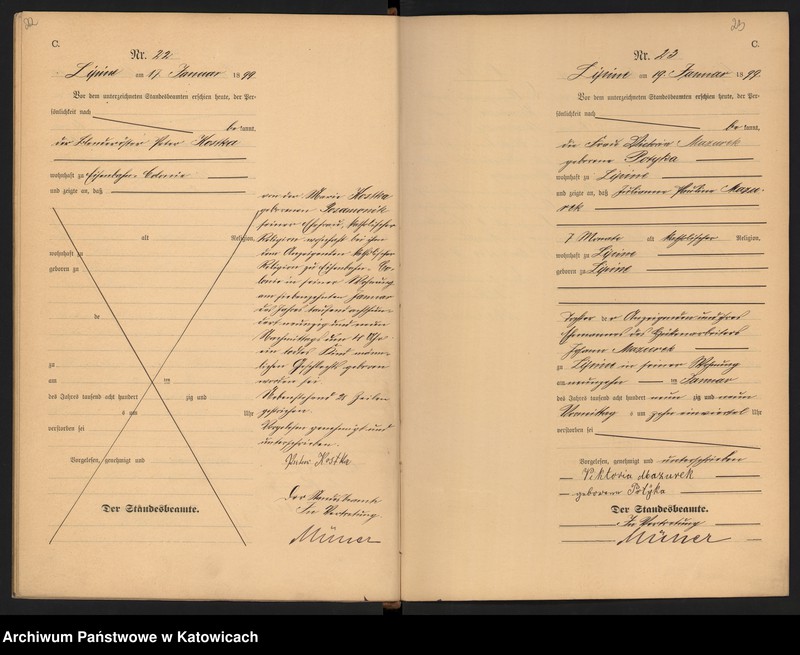 22
C.
Nr. 22
Lipine am 17. Januar 1899.
Vor dem unterzeichneten Standesbeamten erschien heute, der Per-
sönlichkeit nach
be kannt,
der Peter Kostka
wohnhaft zu Eisenbahn-Colonie
und zeigte an, daß
alt Religion,
wohnhaft zu
geboren zu
de
zu
am ten
des Jahres tausend acht hundert zig und
um Uhr
verstorben sei
Vorgelesen, genehmigt und
Der Standesbeamte.
von der Marie Kostka
geborenen
seiner Ehefrau, katholischer
Religion, wohnhaft bei ihm
dem Anzeigenden katholischer
Religion zu Eisenbahn-Co-
lonie in seiner Wohnung
am siebenzehnten Januar
des Jahres tausend achthun-
dert neunzig und neun
Nachmittags um Uhr
ein todtes Kind männ-
lichen Geschlechts geboren
worden sei.
Nebenstehend Zeilen
gestrichen.
Vorgelesen genehmigt und
unterschrieben.
Peter Kostka
Der Standesbeamte
In Vertretung
23
C.
Nr. 23
Lipine am 19. Januar 1899.
Vor dem unterzeichneten Standesbeamten erschien heute, der Per-
sönlichkeit nach
be kannt,
die Frau Victoria Mazurek
geborene Potyka
wohnhaft zu Lipine
und zeigte an, daß Julianna Pauline Mazu-
rek
7 Monate alt katholischer Religion,
wohnhaft zu Lipine
geboren zu Lipine
Tochter der Anzeigenden und ihres
Ehemannes des Hüttenarbeiters
Johann Mazurek
zu Lipine in seiner Wohnung
am neunzehn ten Januar
des Jahres tausend acht hundert neun zig und neun
Vormittag s um zehn einviertel Uhr
verstorben sei
Vorgelesen, genehmigt und unterschrieben
Viktoria Mazurek
geborene Potyka
Der Standesbeamte.
In Vertretung
Archiwum Państwowe w Katowicach